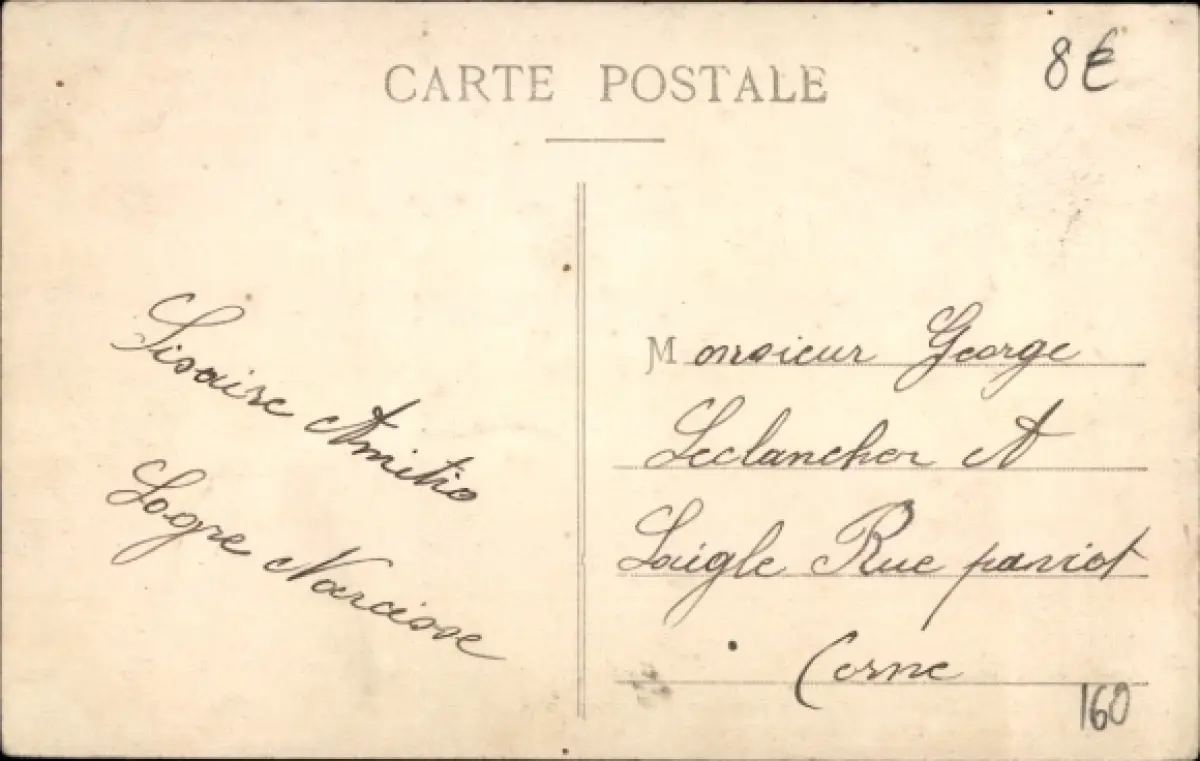 CARTE POSTALE
8€
Sisaire Amitie
Logre Narcisse
Monsieur George
Leclancher A
Laigle Rue paniot
Corne
160